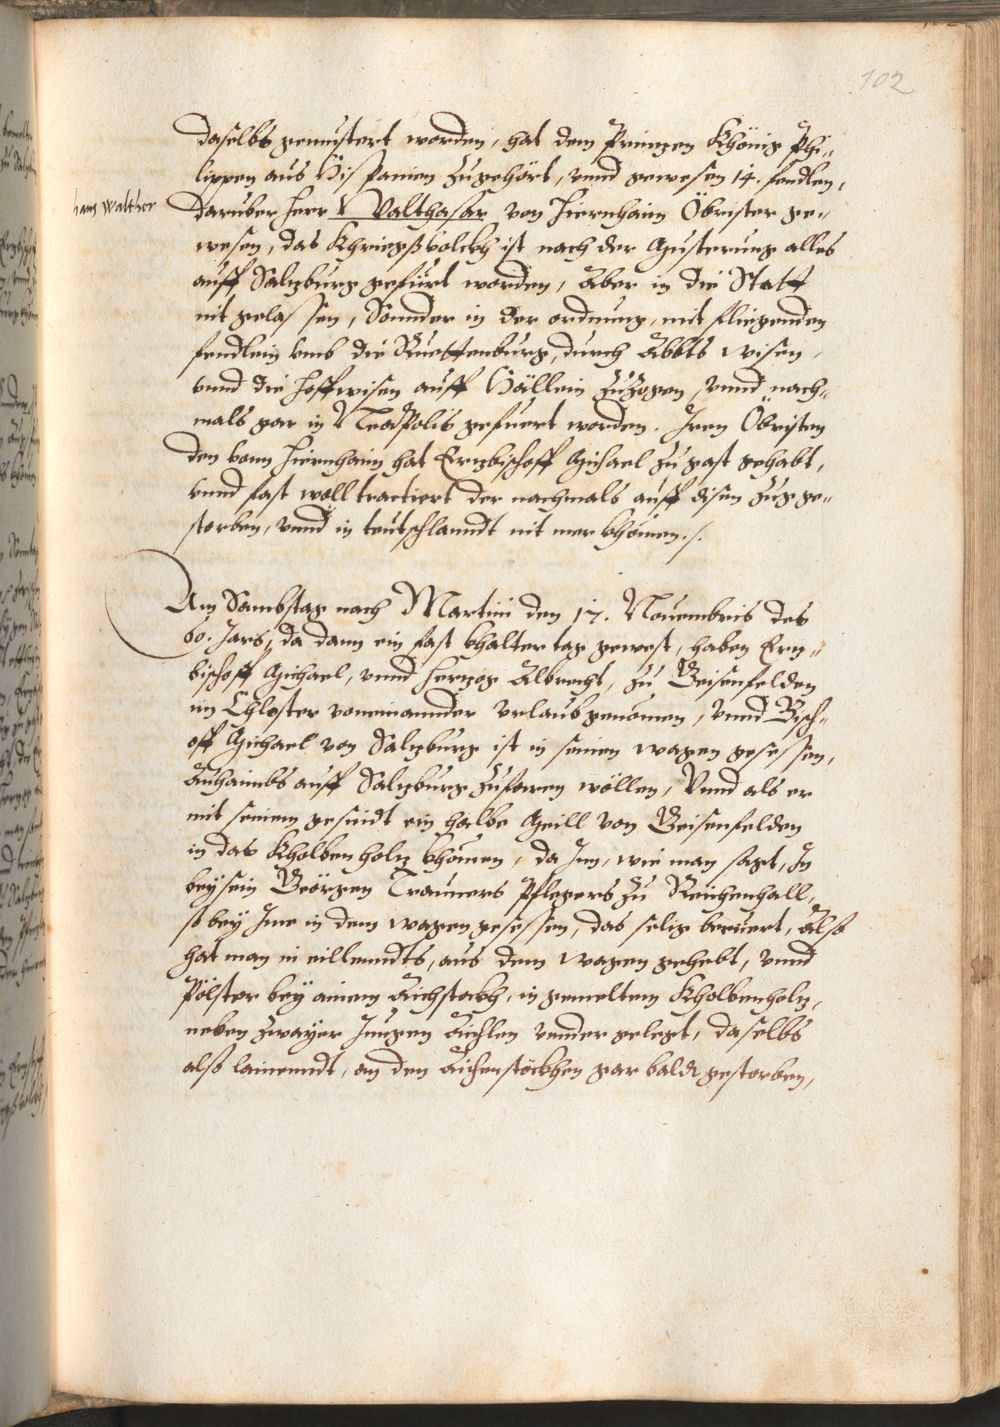 102
daselbs gemustert worden, hat dem Prinzen Khönig Phi-
lippen aus Hispanien zugehört, vnnd gewesen 14. fendlen,
hans Walther
daruber Herr Valthasar von Hiernhaim Öbrister ge-
wesen, das Khriegßvolckh ist nach der Musterung alles
auff Salzburg gefürt worden, Aber in die Statt
nit gelassen, Sonnder in der ordnung, mit fliegenden
fendlein vmb die Ruettenburg, durch Abbts wisen,
vnnd die Hoffwisen auff Hällein zuzogen, vnnd nach-
mals gar in Neapolis gefuert worden. Iren Öbristen
den vonn Hiernhaim hat Erzbischoff Michael zu gast gehabt,
vnnd fast woll tractiert der nachmals auff disen zug ge-
storben, vnnd in teutschlanndt nit mer khömen ./.
Am Sambstag nach Martini den 17. Nouembris des
60. Jars, da dann ein fast khalter tag gewest, haben Erz-
bischoff Michael, vnnd Herzog Albrecht, zu Geisenfelden
im Closter voneinannder vrlaub genomen, vnnd Bisch-
off Michael von Salzburg ist in seinen wagen gesessen,
Anhaimbs auff Salzburg zufaren wöllen, Vnnd als er
mit seinem gesindt ein halbe Meill von Geisenfelden
in das Kholbenholz khömen, da Inn, wie man sagt, In
beysein Geörgen Trauners Pflegers zu Reichenhall,
so bey Ime in dem wagen gesessen, das selig beruert, Also
hat man in eillenndts, aus dem wagen gehebt, vnnd
Pölster bey ainem Aichstockh, in gemeltem Kholbenholz,
neben zwayer Jungen Aichlen vnder gelegt, daselbs
also lainenndt, an den Aichenstöckhen gar baldt gestorben,